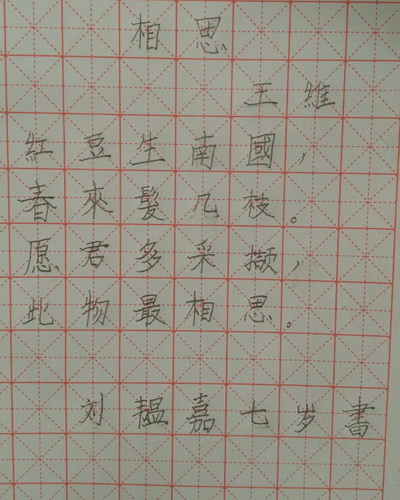 相思
王維
紅豆生南國，
春來髮凡枝。
愿君多采擷，
此物最相思。
刘韞嘉七岁書